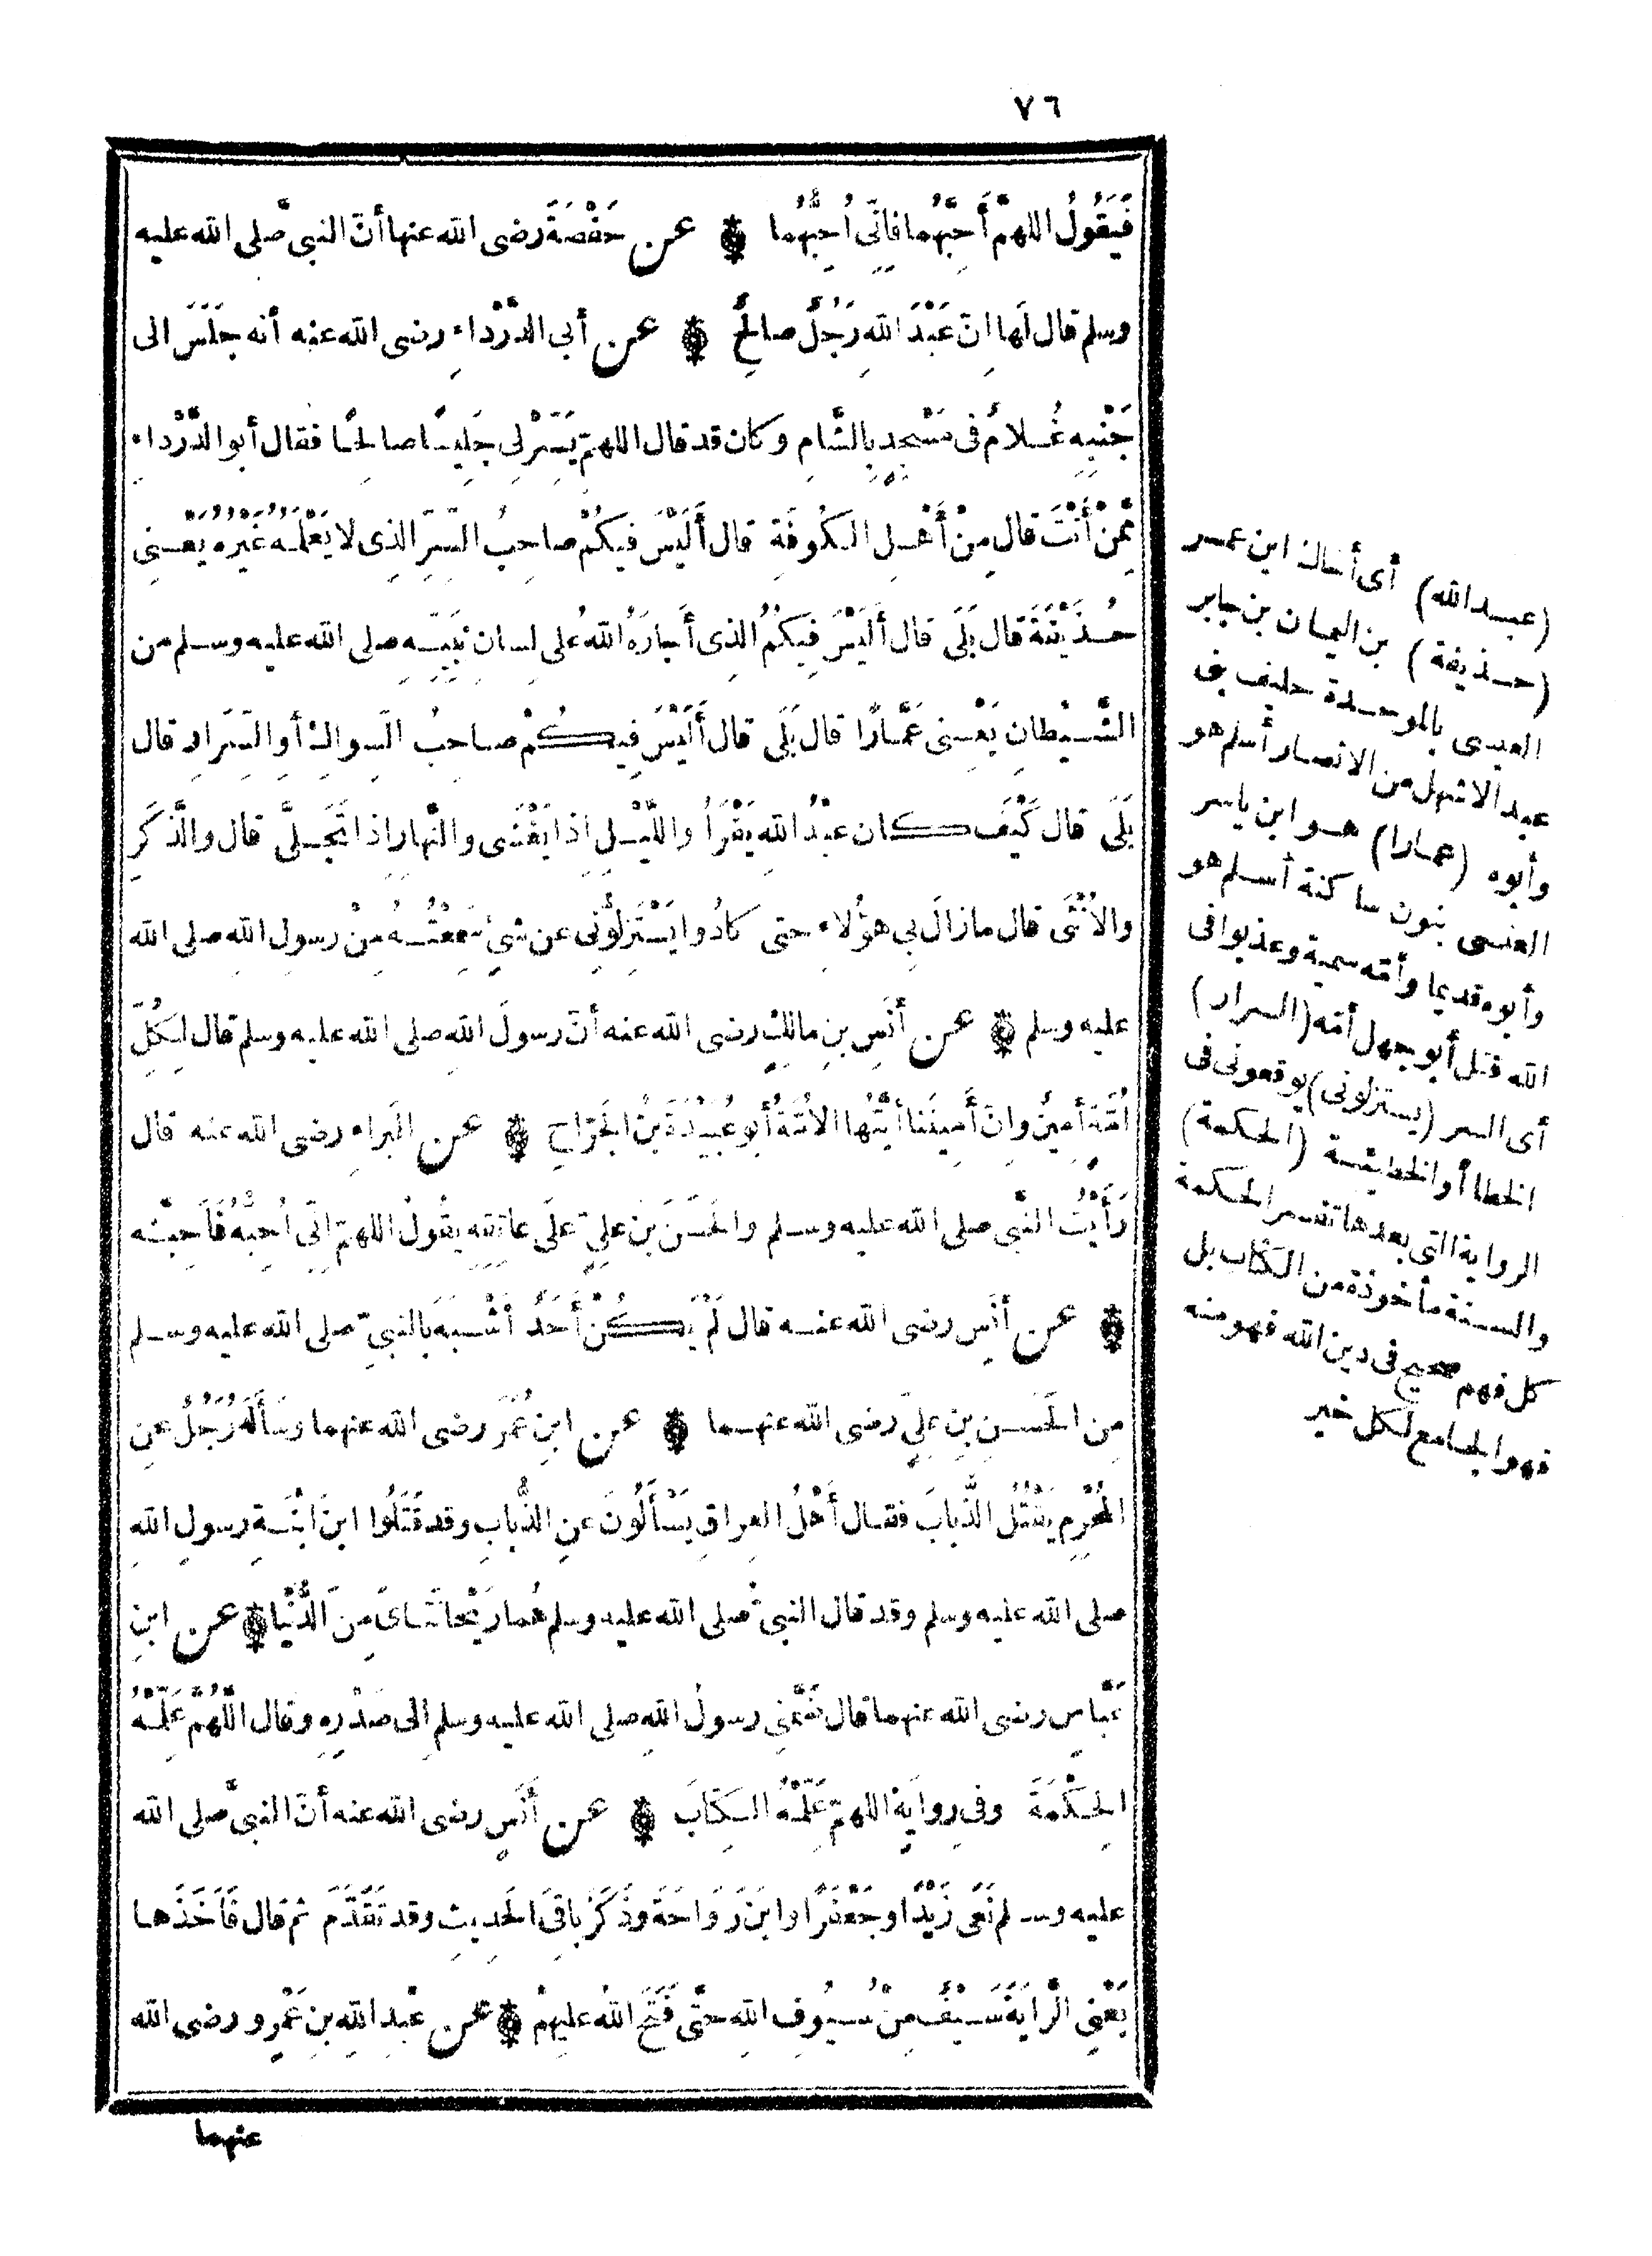 ٧٦
فَيَقُولُ اللهمّ أَحِبَّهُما فإنِّى أُحِبُّهُما ۞ عن حَفْصَةَ رضى الله عنها أنّ النبىَّ صلى الله عليه
وسلم قال لَها اِنّ عَبْدَ اللهِ رَجُلٌ صالحٌ ۞ عن أبى الدَّرْداءِ رضى الله عنه أنه جَلَسَ الى
جَنْبِهِ غُلامٌ فى مَسْجِدٍ بِالشَّامِ وكان قد قال اللهمّ يَسِّرْ لِى جَلِيسًا صالِحًا فقال أبو الدَّرْداءِ
مِمَّنْ أَنْتَ قال مِنْ أَهْلِ الكُوفَةِ قال أَلَيْسَ فيكُمْ صاحِبُ السِّرِّ الذِى لا يَعْلَمُهُ غَيْرُهُ يَعْنِى
حُذَيْفَةَ قال بَلَى قال أَلَيْسَ فِيكُمُ الذِى أَجارَهُ اللهُ على لِسانِ نَبِيِّهِ صلى الله عليه وسلم من
الشَّيْطانِ يَعْنِى عَمَّارًا قال بَلَى قال أَلَيْسَ فِيكُمْ صاحِبُ السِّواكِ أَوِ السِّرَارِ قال
بَلَى قال كَيْفَ كان عبْدُ اللهِ يَقْرَأُ واللَّيْلِ إذا يَغْشَى والنَّهارِ إذا تَجَلَّى قال والذَّكَرِ
والأُنْثَى قال ما زالَ بِى هؤُلاءِ حتى كادُوا يَسْتَزِلُّونِى عن شئٍ سَمِعْتُهُ مِنْ رسولِ اللهِ صلى الله
عليه وسلم ۞ عن أَنَسِ بنِ مالكٍ رضى الله عنه أنّ رسولَ اللهِ صلى الله عليه وسلم قال لِكُلِّ
أُمَّةٍ أَمِينٌ وإنّ أَمِينَنا أيَّتُها الأُمَّةُ أبو عُبَيْدَةَ بنُ الجَرّاحِ ۞ عن البَراءِ رضى الله عنه قال
رَأَيْتُ النَّبِى صلى الله عليه وسلم والحَسَنَ بن علىّ علَى عاتِقِهِ يقُولُ اللهمّ إنِّى أُحِبُّهُ فَأَحِبَّه
۞ عن أنَسٍ رضى الله عنه قال لَمْ يَكُنْ أَحَدٌ أَشْبَهَ بالنبىِّ صلى الله عليه وسلم
مِن الحَسَنِ بنِ علىٍّ رضى الله عنهما ۞ عن ابنِ عُمَرَ رضى الله عنهما وسَأَلَهُ رَجُلٌ عن
المُحْرِمِ يَقْتُلُ الذُّبابَ فقال أَهْلُ العِراقِ يَسْأَلُونَ عنِ الذُّبابِ وقد قَتَلُوا ابنَ ابْنَةِ رسولِ اللهِ
صلى الله عليه وسلم وقد قال النبىّ صلى الله عليه وسلم هُما رَيْحانَتَاىَ مِنَ الدُّنْيا ۞ عن ابنِ
عَبَّاسٍ رضى الله عنهما قال ضَمَّنِى رسولُ اللهِ صلى الله عليه وسلم إلى صَدْرِهِ وقال اللَّهُمَّ عَلِّمْهُ
الحِكْمَةَ وفى رِوايَةٍ اللهمّ عَلِّمْهُ الكِتابَ ۞ عن أَنَسٍ رضى الله عنه أنّ النبىَّ صلى الله
عليه وسلم نَعَى زَيْدًا وجَعْفَرًا وابنَ رَوَاحَةَ وذَكَرَ باقِىَ الحَدِيثِ وقد تَقَدَّمَ ثم قال فَأَخَذَها
يَعْنِى الرَّايَةَ سَيْفٌ مِنْ سُيُوفِ اللهِ حتَّى فَتَحَ اللهُ عليهِمْ ۞ عن عبْدِ اللهِ بنِ عَمْرٍو رضى الله
عنهما
(عبد الله) أى أخاك ابن عمر
(حذيفة) بن اليمان بن جابر
العبسى بالموحدة حليف بنى
عبد الاشهل من الانصار أسلم هو
وأبوه (عمارا) هو ابن ياسر
العنسى بنون ساكنة أسلم هو
وأبوه قديما وأمّه سمية وعذبوا فى
الله قتل أبو جهل أمّه (السرار)
أى السر (يستزلونى) يوقعونى فى
الخطا أو الخطيئة (الحكمة)
الرواية التى بعدها تفسر الحكمة
والسنة مأخوذة من الكتاب بل
كل فهم صحيح فى دين الله فهو منه
فهو الجامع لكل خير